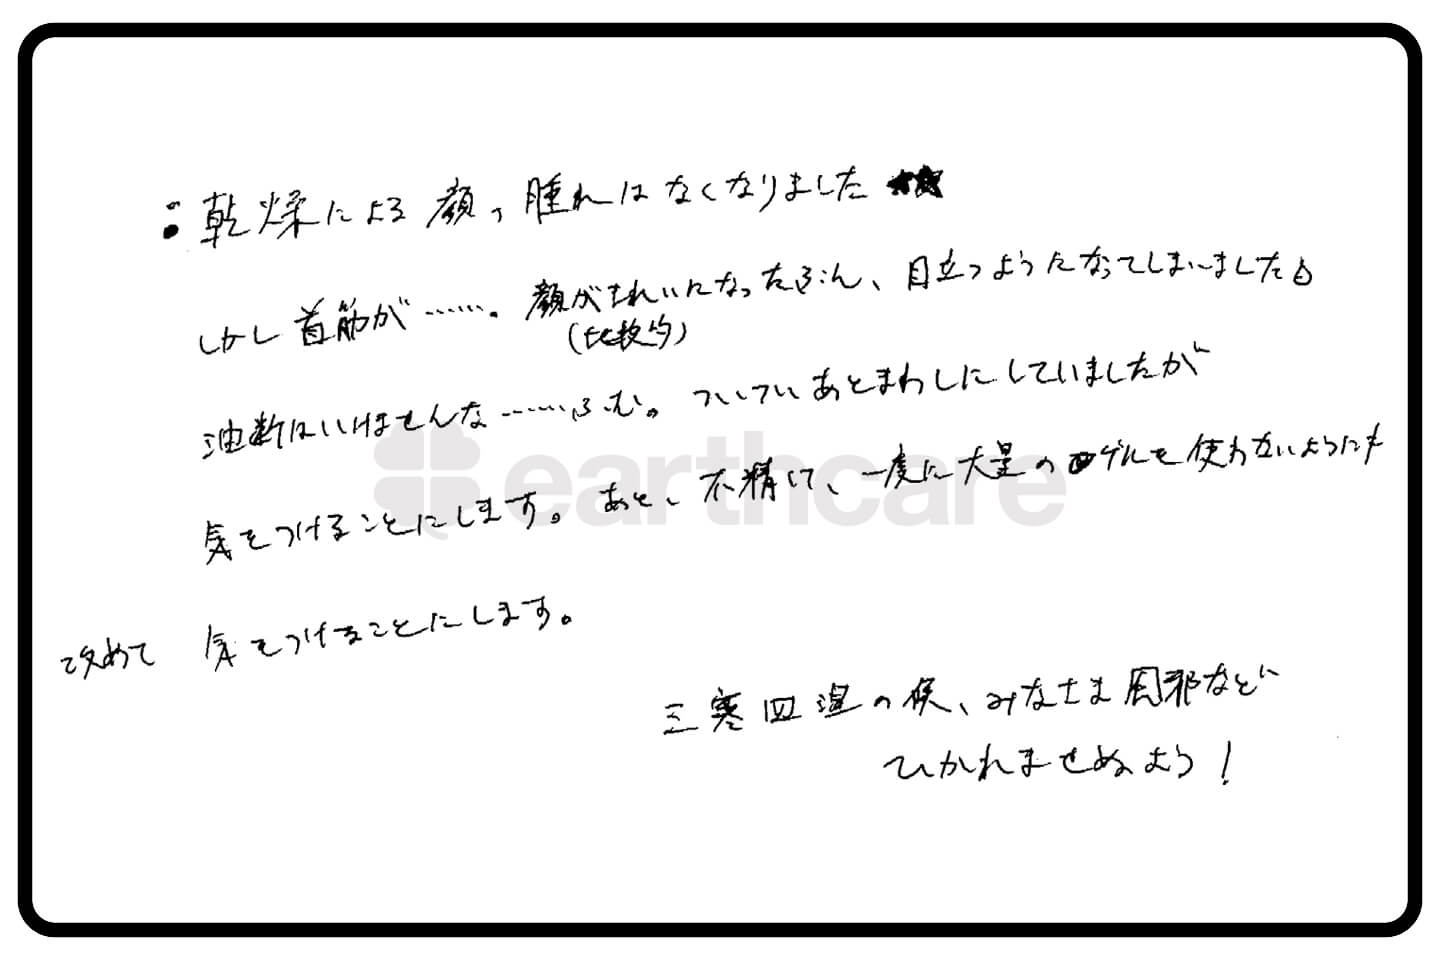 乾燥による顔の腫れはなくなりました★
しかし首筋が……。顔がきれいになったぶん、目立つようになってしまいました
(比較的)
油断はいけませんな……ふむ。ついついあとまわしにしていましたが
earthcare
気をつけることにします。あと、不精して、一度に大量のゲルを使わないようにも
改めて 気をつけることにします。
三寒四温の候、みなさま風邪など
ひかれませぬよう!